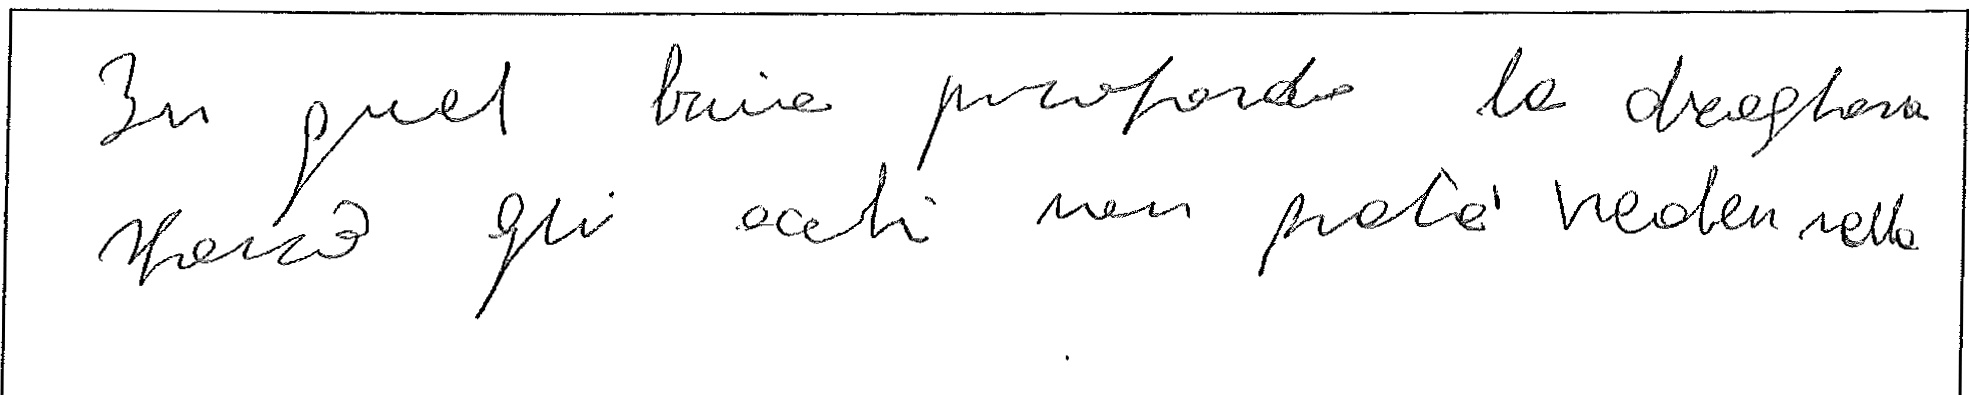 In quel buio profondo la draghessa
sforzò gli occhi non poté vedere nella